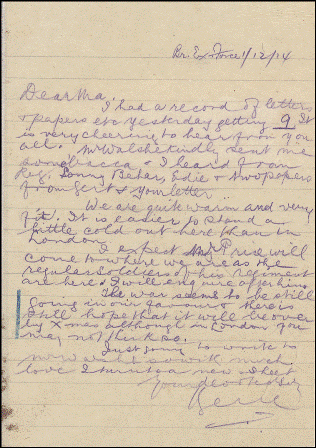 Br. Ex. Force 1/12/14
Dear Ma,
I had a record of letters
& papers etc yesterday getting 9. It
is very cheering to hear from you
all. Mr Walshe kindly sent me
some bacca & I heard from
Reg, Sonny Baker, Edie & two papers
from Gert & your letter.
We are quite warm and very
fit. It is easier to stand a
little cold out here than in
London.
I expect Mr Price will
come to where we are as the
regular soldiers of his regiment
are here. I will enquire after him.
The war seems to be still
going in our favour & there is
still hope that it will be over
by Xmas although in London you
may not think so.
Just going to work so
now with much
love I turn to a new sheet
Your devoted Son